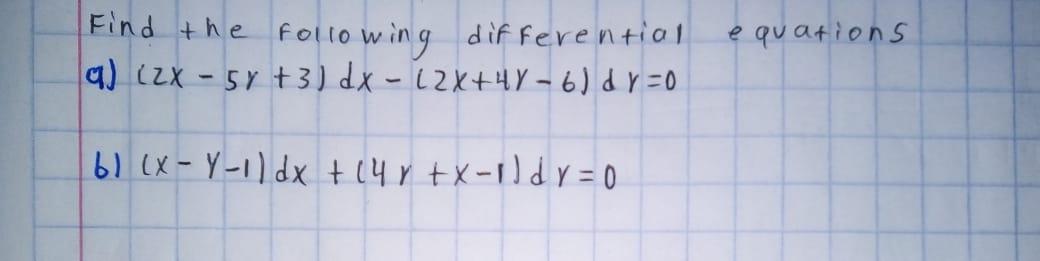 Find the following differential equations
a) (2x - 5y + 3) dx - (2x + 4y - 6) dy = 0
b) (x - y - 1) dx + (4y + x - 1) dy = 0